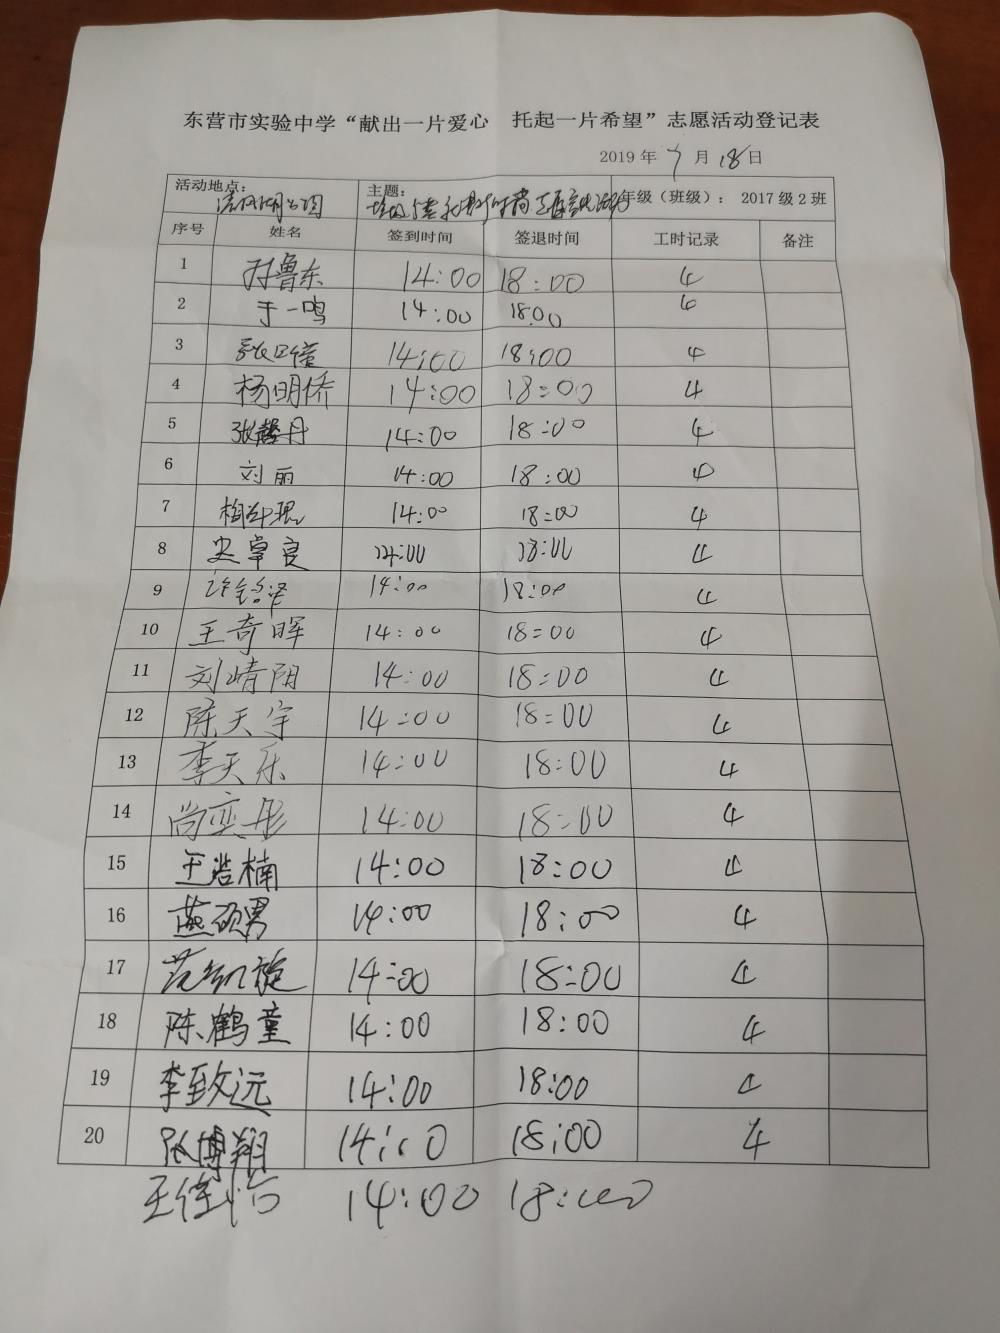 东营市实验中学“献出一片爱心 托起一片希望”志愿活动登记表
2019 年 7 月 18 日
活动地点： 清风湖公园 主题： 年级（班级）： 2017 级 2 班
序号 姓名 签到时间 签退时间 工时记录 备注
1 鲁东 14:00 18:00 4
2 于一鸣 14:00 18:00
3 14:00 18:00 4
4 杨明侨 14:00 18:00 4
5 张馨丹 14:00 18:00 4
6 刘丽 14:00 18:00
7 14:00 18:00 4
8 史卓良 14:00 18:00 4
9 许铭泽 14:00 18:00 4
10 王奇晖 14:00 18:00 4
11 刘靖阴 14:00 18:00 4
12 陈天宇 14:00 18:00 4
13 李天乐 14:00 18:00 4
14 尚奕彤 14:00 18:00 4
15 王浩楠 14:00 18:00 4
16 燕硕男 14:00 18:00 4
17 范凯旋 14:00 18:00 4
18 陈鹤童 14:00 18:00 4
19 李致远 14:00 18:00 4
20 张博翔 14:00 18:00 4
王佳怡 14:00 18:00